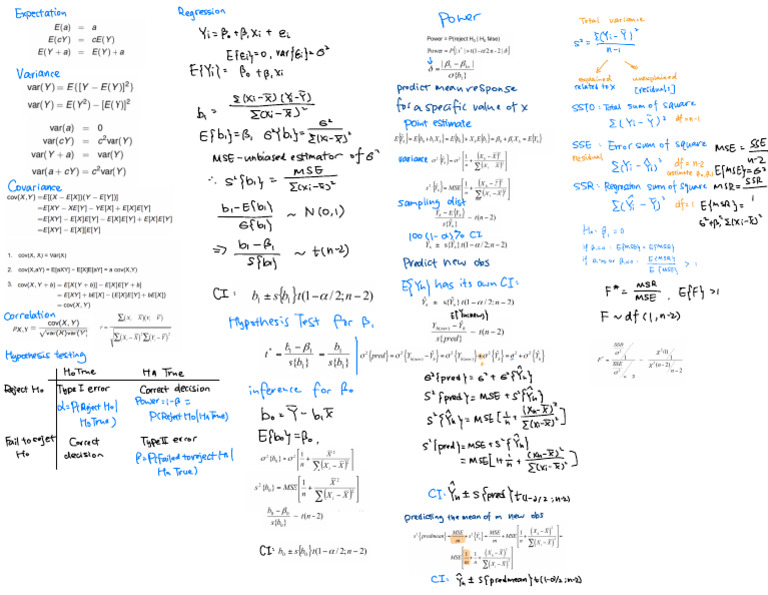 Expectation
E(a) = a
E(cY) = cE(Y)
E(Y + a) = E(Y) + a
Variance
var(Y) = E{[Y − E(Y)]²}
var(Y) = E(Y²) − [E(Y)]²
var(a) = 0
var(cY) = c²var(Y)
var(Y + a) = var(Y)
var(a + cY) = c²var(Y)
Covariance
cov(X,Y) = E{[X − E(X)][Y − E(Y)]}
= E[XY − XE[Y] − YE[X] + E[X]E[Y]
= E[XY] − E[X]E[Y] − E[X]E[Y] + E[X]E[Y]
= E[XY] − E[X]E[Y]
1. cov(X, X) = Var(X)
2. cov(X,aY) = E[aXY] − E[X]E[aY] = a cov(X,Y)
3. cov(X, Y + b) = E[X(Y + b)] − E[X]E[Y + b]
= E[XY] + bE[X] − E[X]E[Y] + bE[X])
= cov(X, Y)
Correlation
ρX,Y = cov(X,Y) / √var(X)var(Y)
r = Σ(Xi − X̄)(Yi − Ȳ) / √Σ(Xi − X̄)²Σ(Yi − Ȳ)²
Hypothesis testing
Ho True HA True
Reject Ho Type I error Correct decision
α = P(Reject Ho | Ho True) Power = 1-β = P(Reject Ho | HA True)
Fail to reject Ho Correct decision Type II error
β = P(Failed to reject Ho | HA True)
Regression
Yi = β0 + β1 Xi + ei
E{Ei} = 0, var{Ei} = σ²
E{Yi} = β0 + β1 Xi
b1 = Σ(Xi − X̄)(Yi − Ȳ) / Σ(Xi − X̄)²
E{b1} = β1 σ²{b1} = σ² / Σ(Xi − X̄)²
MSE - unbiased estimator of σ²
∴ S²{b1} = MSE / Σ(Xi − X̄)²
b1 − E{b1} / σ{b1} ~ N(0,1)
⇒ b1 − β1 / S{b1} ~ t(n-2)
CI: b1 ± s{b1}t(1 − α/2; n − 2)
Hypothesis Test for β1
t* = b1 − β1 / s{b1} = b1 / s{b1}
inference for β0
b0 = Ȳ − b1X̄
E{b0} = β0,
σ²{b0} = σ²[1/n + X̄² / Σ(Xi − X̄)²]
s²{b0} = MSE[1/n + X̄² / Σ(Xi − X̄)²]
b0 − β0 / s{b0} ~ t(n − 2)
CI: b0 ± s{b0}t(1 − α/2; n − 2)
Power
δ = |β1 − β10| / σ{b1}
predict mean response
for a specific value of X
point estimate
variance σ²{Ŷh} = σ²[1/n + (Xh − X̄)² / Σ(Xi − X̄)²]
s²{Ŷh} = MSE[1/n + (Xh − X̄)² / Σ(Xi − X̄)²]
sampling dist
Ŷh − E{Yh} / s{Ŷh} ~ t(n − 2)
100(1-α)% CI
Ŷh ± s{Ŷh}t(1 − α/2; n − 2)
Predict new obs
E{Yh} has its own CI:
Ŷh ± s{Ŷh}t(1 − α/2; n − 2)
Yh(new) − Ŷh / s{pred} ~ t(n − 2)
σ²{pred} = σ²{Yh(new) − Ŷh} = σ²{Yh(new)} + σ²{Ŷh} = σ² + σ²{Ŷh}
σ²{pred} = σ² + σ²{Ŷh}
S²{pred} = MSE + S²{Ŷh}
S²{Ŷh} = MSE[1/n + (Xh − X̄)² / Σ(Xi − X̄)²]
S²{pred} = MSE + S²{Ŷh}
= MSE[1 + 1/n + (Xh − X̄)² / Σ(Xi − X̄)²]
CI: Ŷh ± S{pred}t(1-α/2; n-2)
predicting the mean of m new obs
s²{predmean} = MSE/m + s²{Ŷh} = MSE/m + MSE[1/n + (Xh − X̄)² / Σ(Xi − X̄)²] =
MSE[1/m + 1/n + (Xh − X̄)² / Σ(Xi − X̄)²]
CI: Ŷh ± S{predmean}t(1-α/2; n-2)
Total variance
S² = Σ(Yi − Ȳ)² / n-1
explained unexplained
related to X [residuals]
SSTO: Total sum of square
Σ(Yi − Ȳ)² df = n-1
SSE: Error sum of square MSE = SSE / n-2
residual Σ(Yi − Ŷi)² df = n-2 E{MSE} = σ²
SSR: Regression sum of square MSR = SSR / 1
Σ(Ŷi − Ȳ)² df = 1 E{MSR} =
σ² + β1² Σ(Xi − X̄)²
Ho: β1 = 0
F* = MSR / MSE, E{F} > 1
F ~ df(1, n-2)